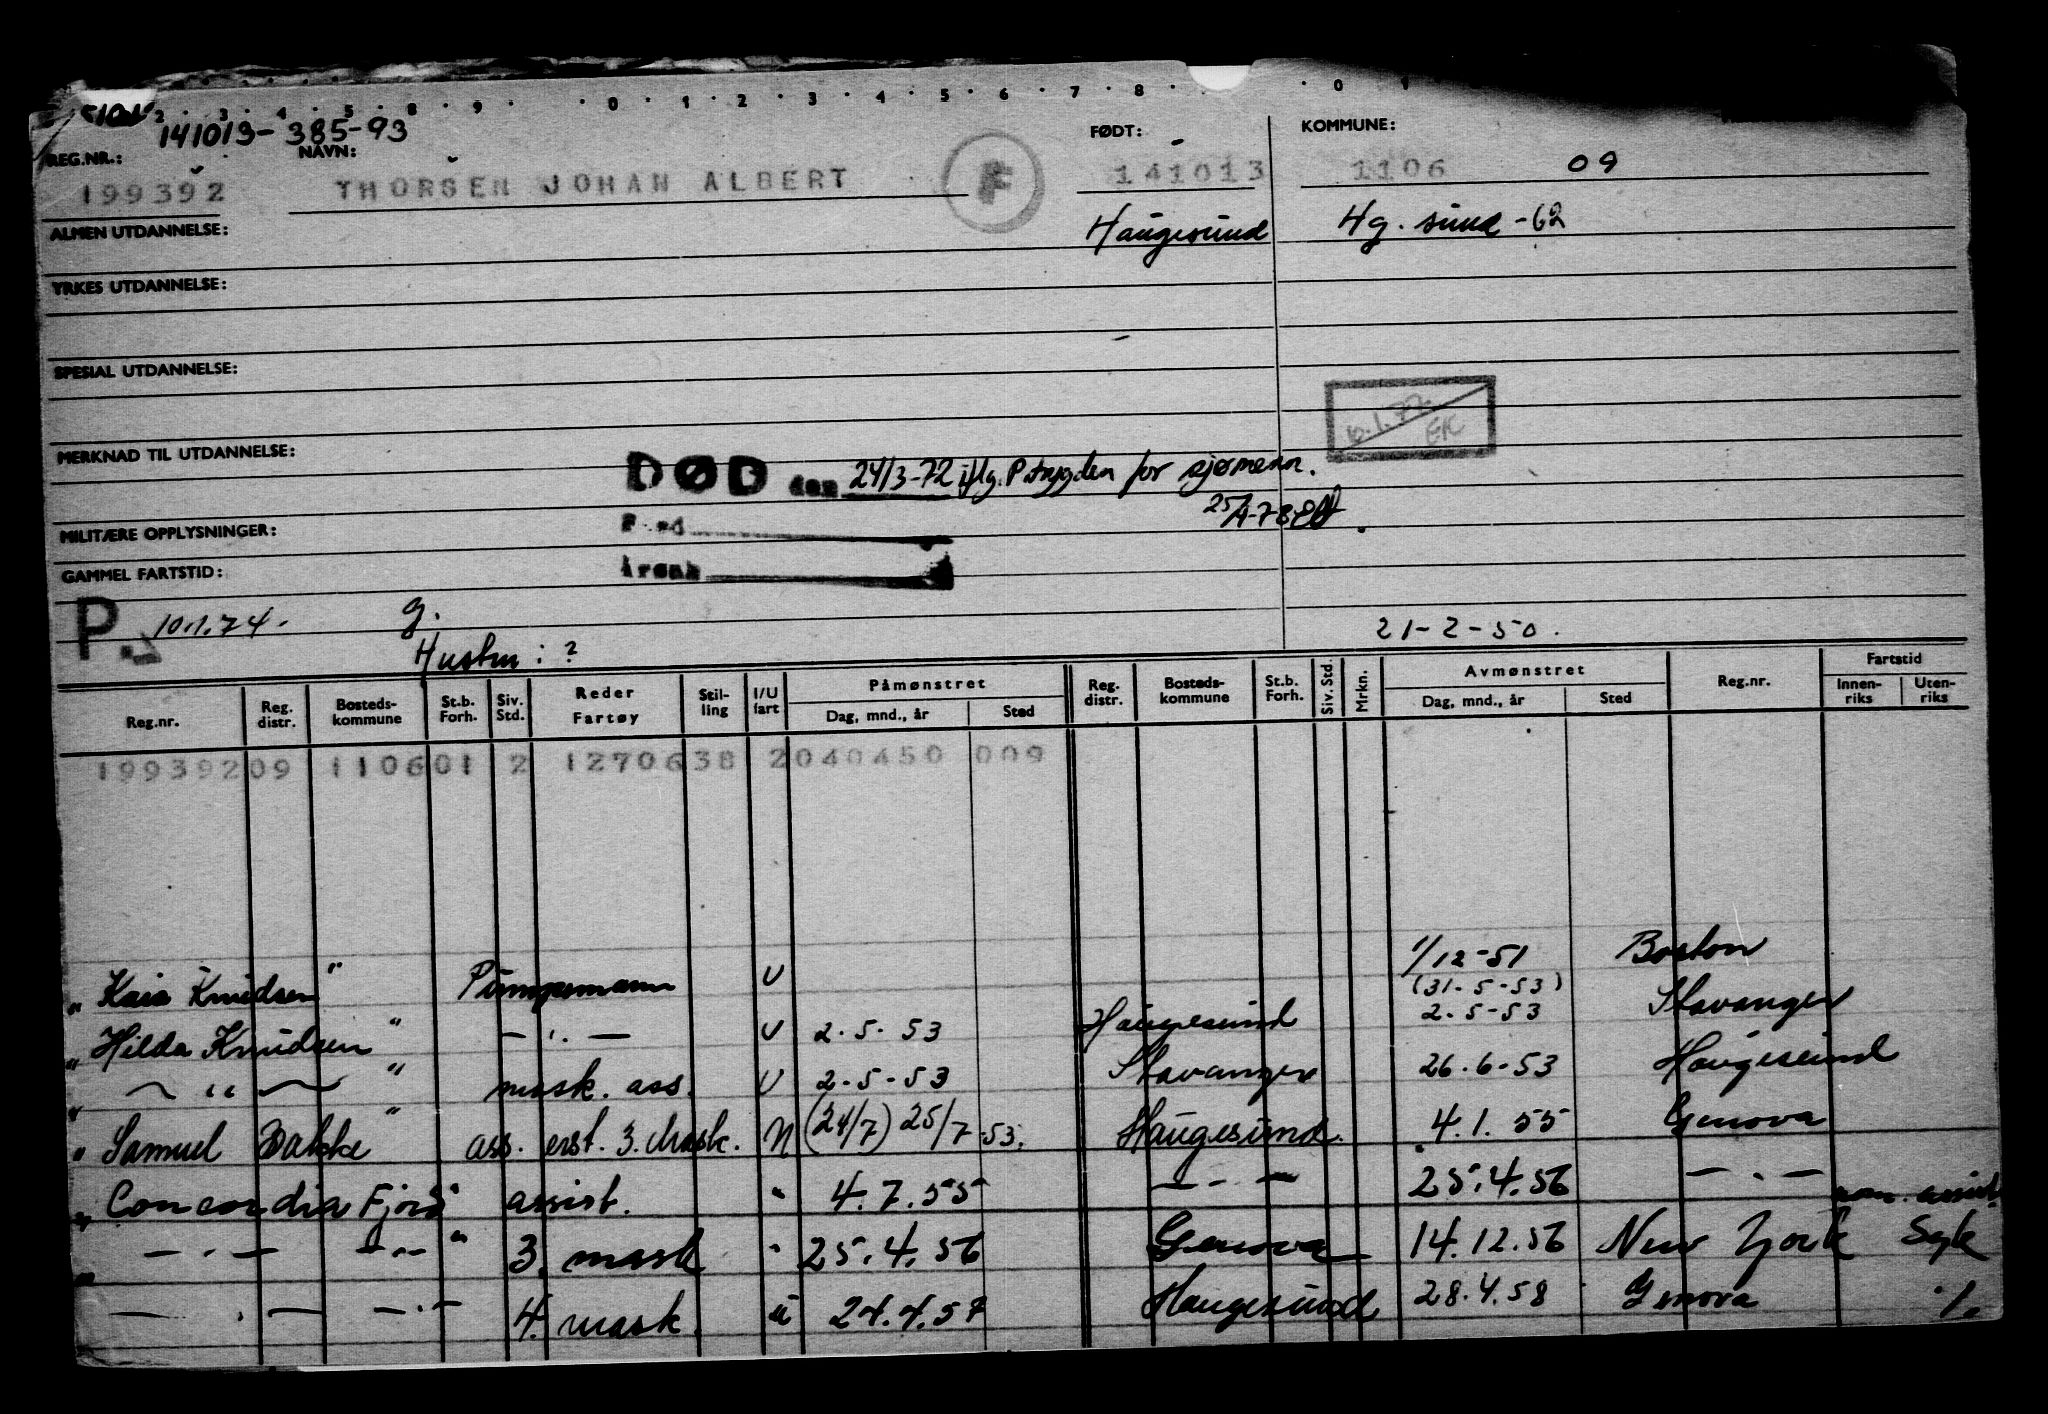 2 . 3 . 4 . 5 . 8 . 9 . . 0 . 1 . 2 . 3 . 4 . 5 . 6 . 7 . 8 . . 0 1
141013-385-93
REG.NR.: NAVN: FØDT: KOMMUNE:
199392 THORSEN JOHAN ALBERT F 141013 1106 09
ALMEN UTDANNELSE: Haugesund Hg.sund -62
YRKES UTDANNELSE:
SPESIAL UTDANNELSE:
EK
MERKNAD TIL UTDANNELSE:
DØD den 24/3-72 iflg. P.trygden for sjømenn.
MILITÆRE OPPLYSNINGER:
GAMMEL FARTSTID:
P. 10.1.74. g.
Hustru : ? 21-2-50.
Reg.nr. Reg. distr. Bosteds- kommune St.b. Forh. Siv. Std. Reder Fartøy Stil- ling I/U fart Påmønstret Dag, mnd., år Sted Reg. distr. Bosteds- kommune St.b. Forh. Siv. Std. Mrkn. Avmønstret Dag, mnd., år Sted Reg.nr. Fartstid Innen- riks Uten- riks
199392 09 1106 01 2 1270638 2 040450 009
" Kaia Knudsen " Pumpemann U 1/12-51 Boston
" Hilda Knudsen " — " — U 2.5.53 Haugesund (31.5-53) 2.5-53 Stavanger
" — " — " mask. ass. U 2-5-53 Stavanger 26.6-53 Haugesund
" Samuel Bakke " ass. erst. 3. Mask. N (24/7) 25/7-53. Haugesund. 4.1.55 Genova
" Concordia Fjord " assist. " 4.7.55 — - — 25.4.56 — . —
" — . — — . — " 3. mask " 25.4.56 Genova 14.12.56 New York Syk
— . — — . — 4. mask. u 24.4.57 Haugesund 28.4.58 Genova